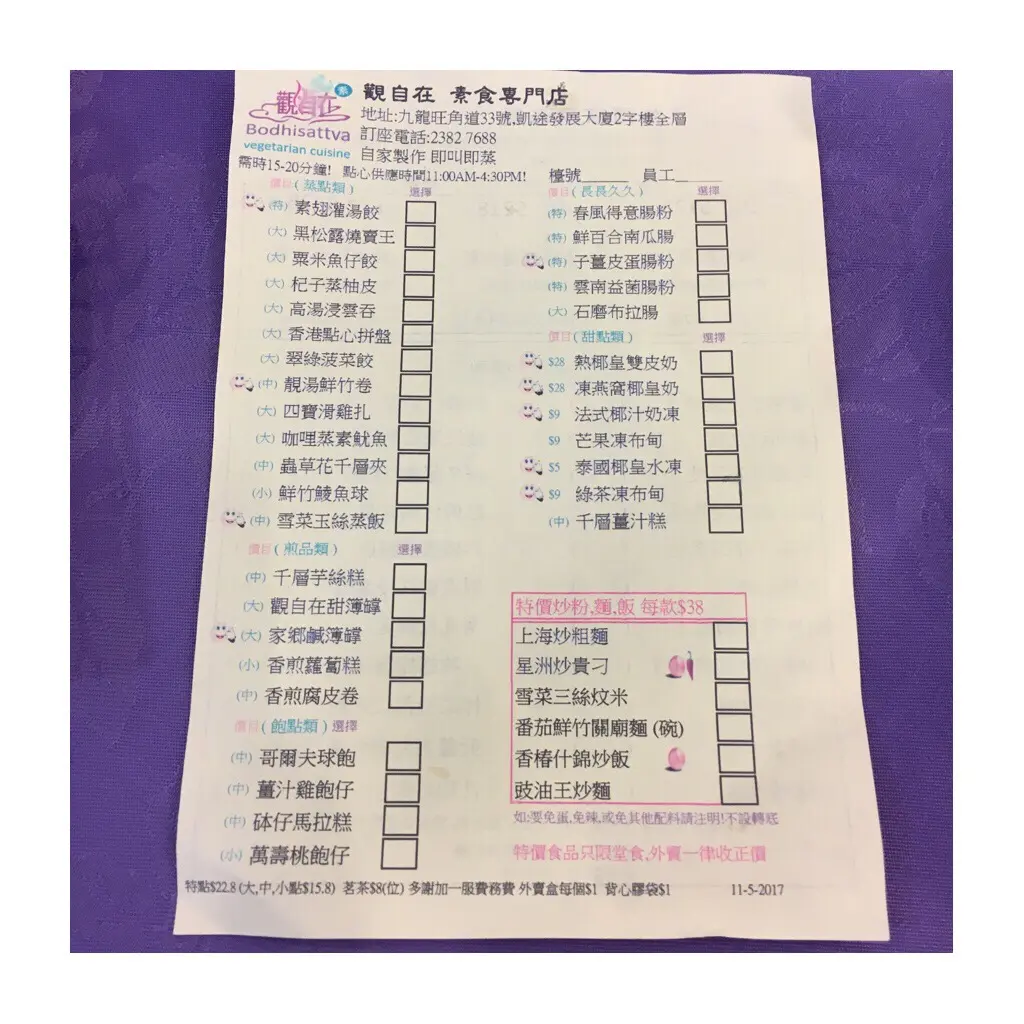 觀自在 素 觀自在 素食專門店
Bodhisattva
vegetarian cuisine
地址:九龍旺角道33號,凱途發展大廈2字樓全層
訂座電話:2382 7688
自家製作 即叫即蒸
需時15-20分鐘! 點心供應時間11:00AM-4:30PM! 檯號______ 員工______
價目(蒸點類) 選擇
(特) 素翅灌湯餃
(大) 黑松露燒賣王
(大) 粟米魚仔餃
(大) 杞子蒸柚皮
(大) 高湯浸雲吞
(大) 香港點心拼盤
(大) 翠綠菠菜餃
(中) 靚湯鮮竹卷
(大) 四寶滑雞扎
(大) 咖哩蒸素魷魚
(中) 蟲草花千層夾
(小) 鮮竹鯪魚球
(中) 雪菜玉絲蒸飯
價目(煎品類) 選擇
(中) 千層芋絲糕
(大) 觀自在甜簿罉
(大) 家鄉鹹簿罉
(小) 香煎蘿蔔糕
(中) 香煎腐皮卷
價目(飽點類) 選擇
(中) 哥爾夫球飽
(中) 薑汁雞飽仔
(中) 砵仔馬拉糕
(小) 萬壽桃飽仔
價目(長長久久) 選擇
(特) 春風得意腸粉
(特) 鮮百合南瓜腸
(特) 子薑皮蛋腸粉
(特) 雲南益菌腸粉
(大) 石磨布拉腸
價目(甜點類) 選擇
$28 熱椰皇雙皮奶
$28 凍燕窩椰皇奶
$9 法式椰汁奶凍
$9 芒果凍布甸
$5 泰國椰皇水凍
$9 綠茶凍布甸
(中) 千層薑汁糕
特價炒粉,麵,飯 每款$38
上海炒粗麵
星洲炒貴刁
雪菜三絲炆米
番茄鮮竹關廟麵 (碗)
香椿什錦炒飯
豉油王炒麵
如:要免蛋,免辣,或免其他配料請注明!不設轉底
特價食品只限堂食,外賣一律收正價
特點$22.8 (大,中,小點$15.8) 茗茶$8(位) 多謝加一服費務費 外賣盒每個$1 背心膠袋$1 11-5-2017